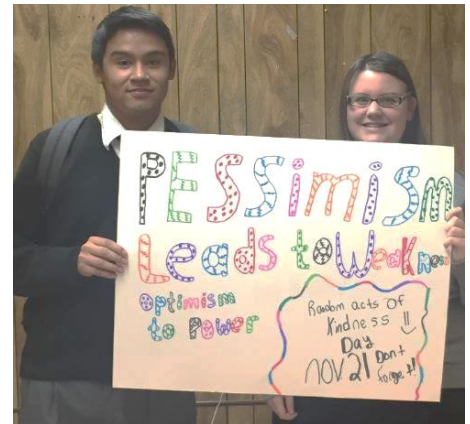 PESSimiSm
Leads to Weakness
optimism
to Power
Random acts of
Kindness
Day
NOV. 21 Don't
forget!